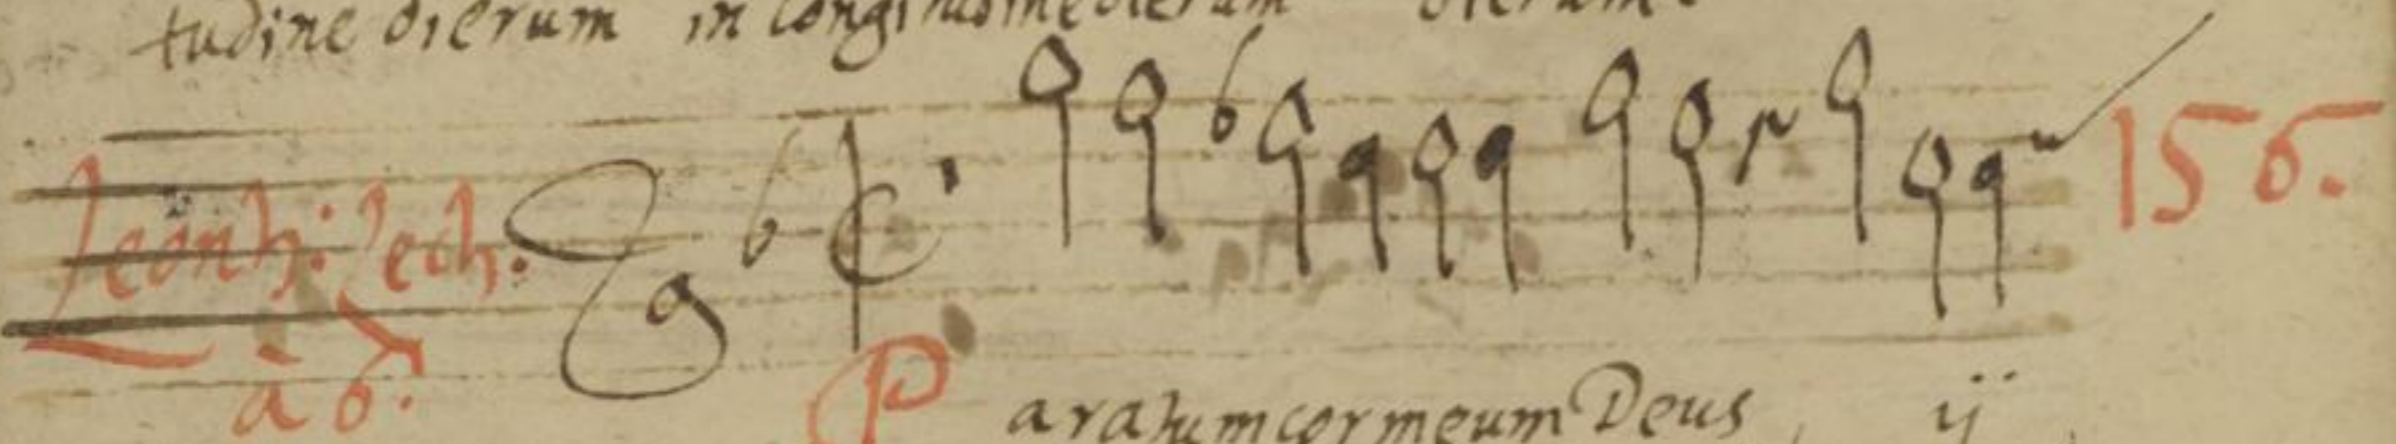 tudine dierum in longitudine dierum dierum.
Leonh: Lech. 156.
à 6.
Paratum cor meum Deus, ij